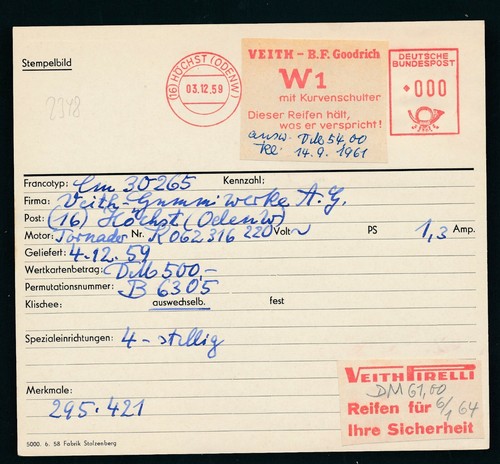 Stempelbild
2348
(16) HÖCHST (ODENW)
03.12.59
VEITH - B.F. Goodrich
W1
mit Kurvenschulter
Dieser Reifen hält,
was er verspricht!
ausw. DM 54.00
14.9. 1961
DEUTSCHE
BUNDESPOST
000
Francotyp: Cm 30265 Kennzahl:
Firma: Veith Gummiwerke A.G.
Post: (16) Höchst (Odenw)
Motor: Tornado Nr. K062316 220 Volt ~ PS 1,3 Amp.
Geliefert: 4.12.59
Wertkartenbetrag: DM 500,-
Permutationsnummer: B 6305
Klischee: auswechselb. fest
Spezialeinrichtungen: 4-stellig
Merkmale:
295.421
VEITH PIRELLI
DM 61,00
Reifen für 6/1 64
Ihre Sicherheit
5000. 6. 58 Fabrik Stolzenberg